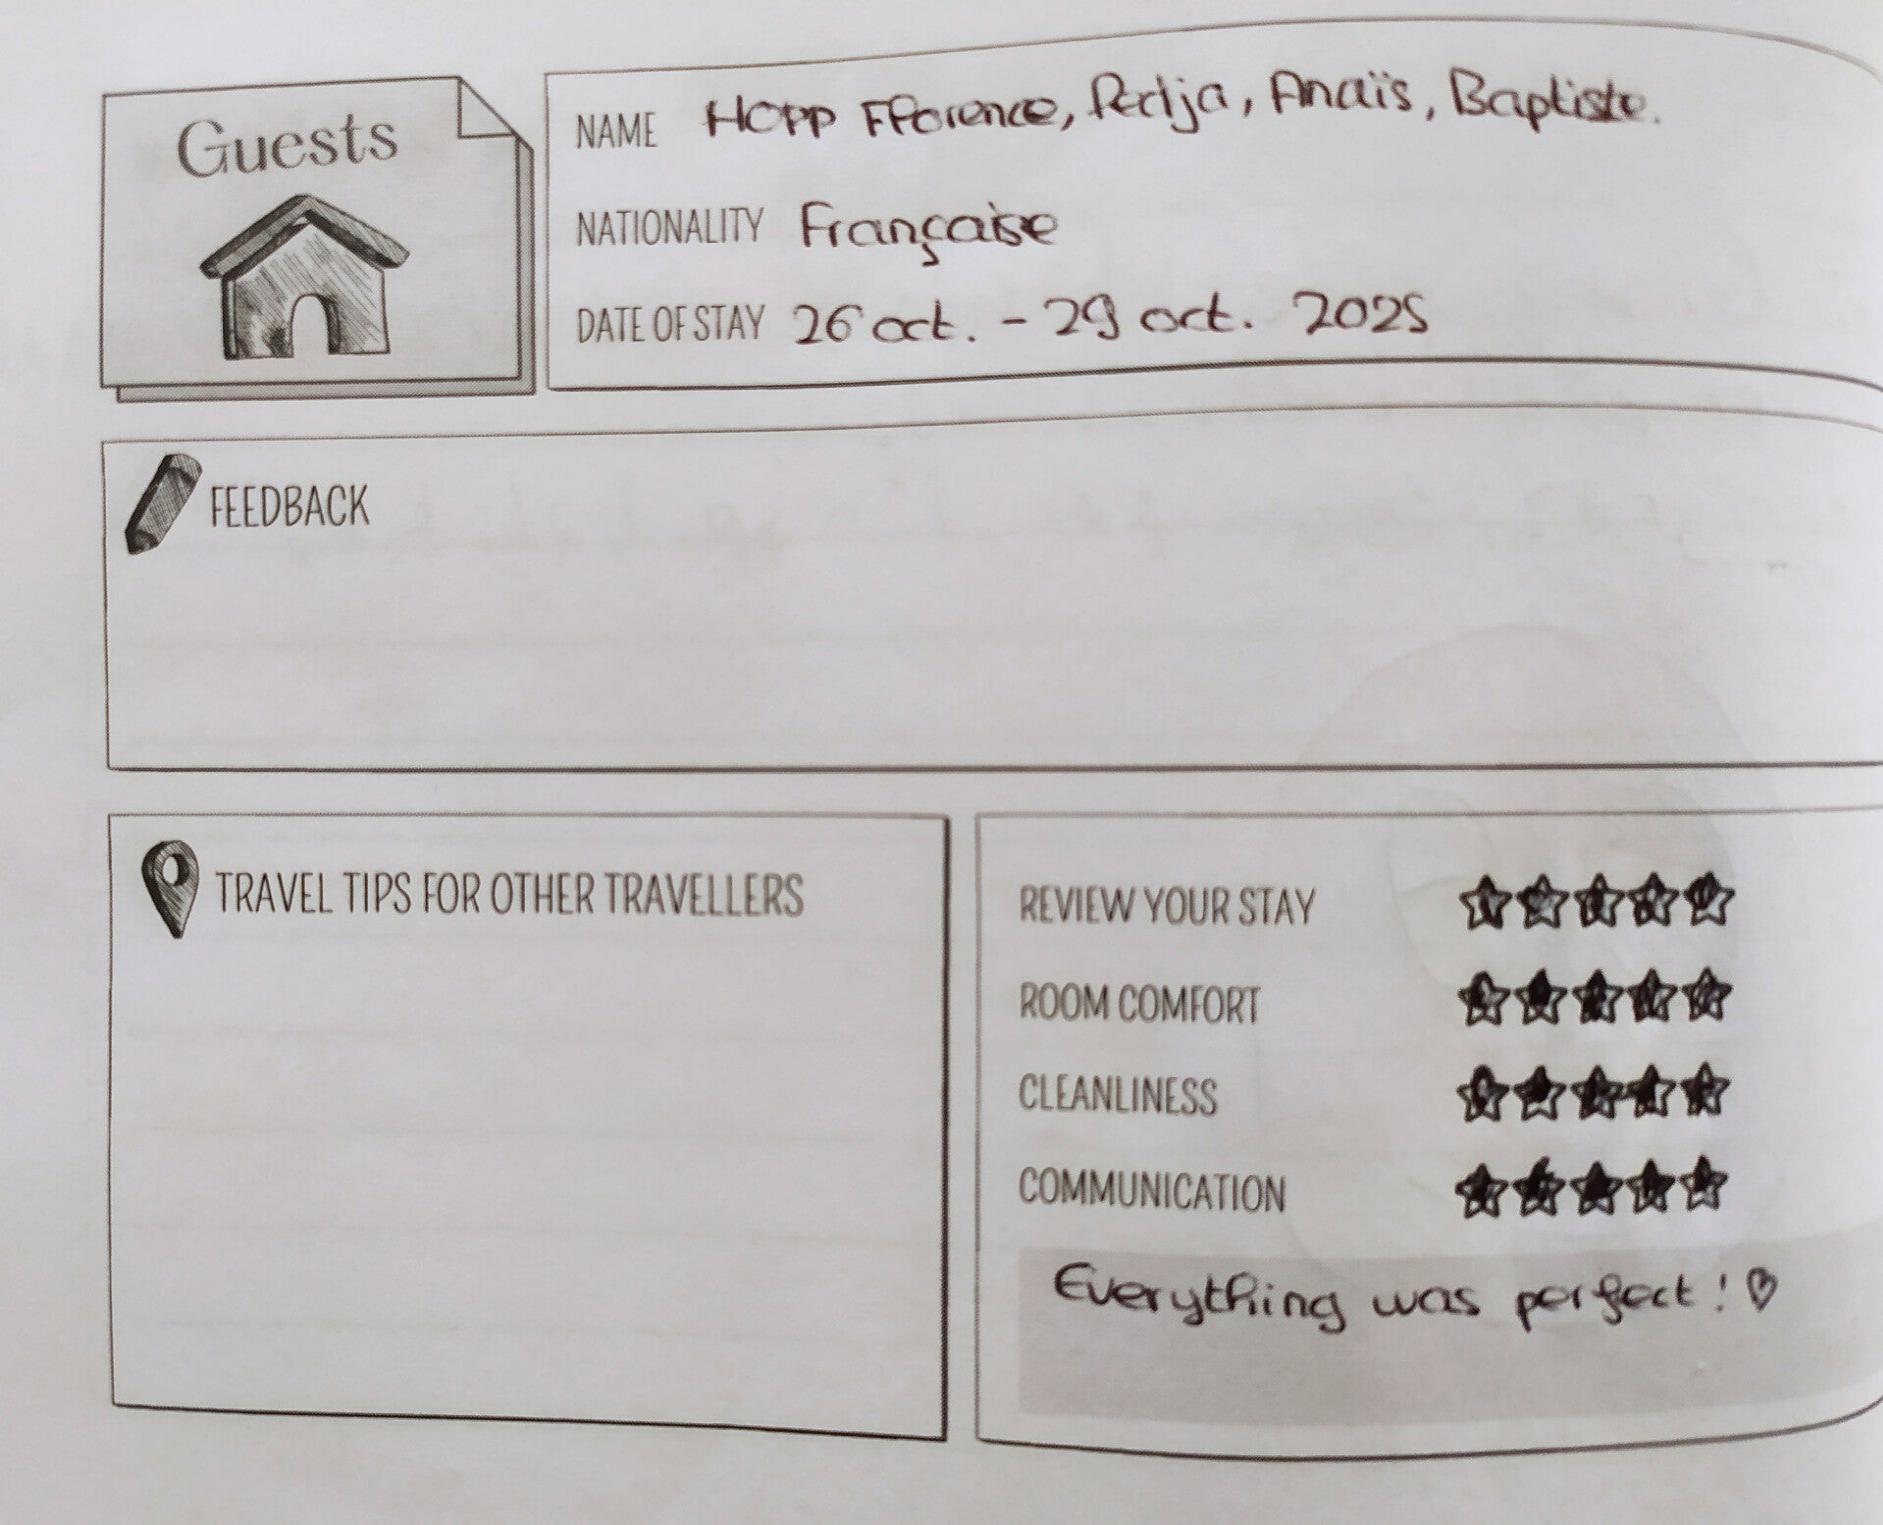 Guests
NAME HOPP Florence, Redja, Anaïs, Baptiste.
NATIONALITY Française
DATE OF STAY 26 oct. - 29 oct. 2025
FEEDBACK
TRAVEL TIPS FOR OTHER TRAVELLERS
REVIEW YOUR STAY
ROOM COMFORT
CLEANLINESS
COMMUNICATION
Everything was perfect ! ♡